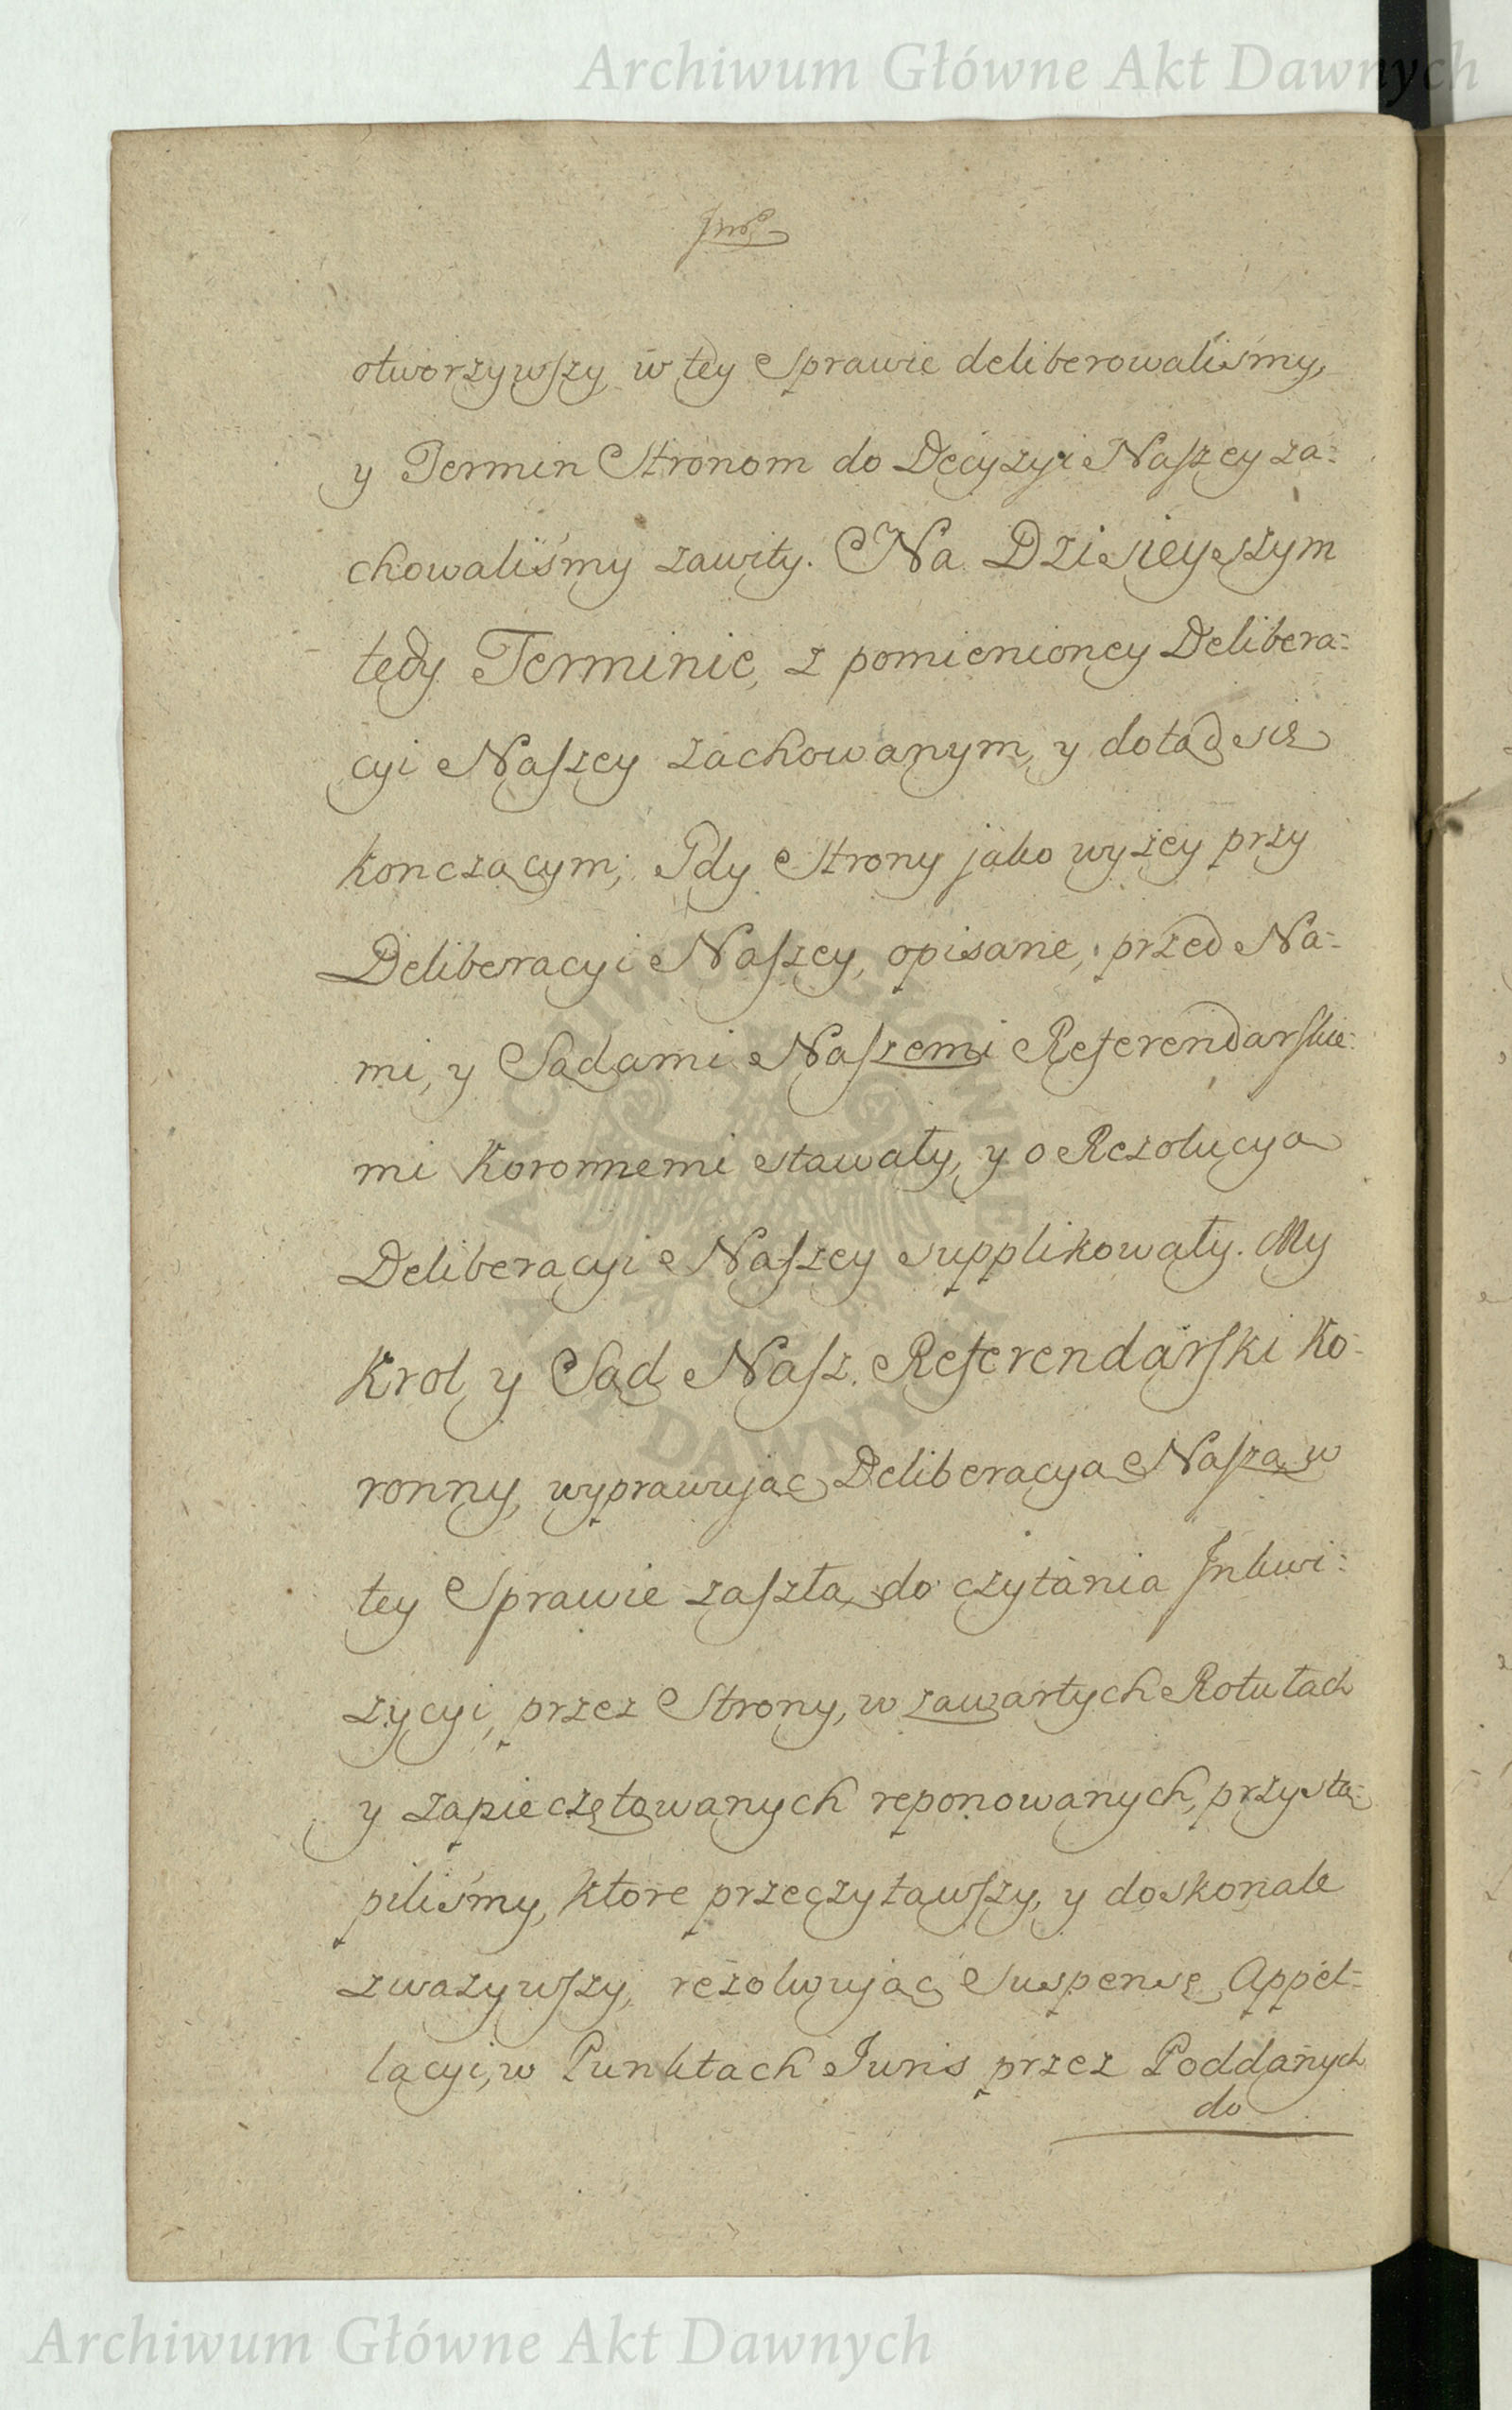 Archiwum Główne Akt Dawnych
otworzywszy w tey Sprawie deliberowaliśmy,
y Termin Stronom do Decyzyi Naszey za=
chowaliśmy zawity. Na Dzisieyszym
tedy Terminie, z pomienioney Delibera=
cyi Naszey zachowanym, y dotąd się
konczącym; Gdy Strony jako wyżey przy
Deliberacyi Naszey, opisane, przed Na=
mi, y Sądami Naszemi Referendarskie=
mi Koronnemi stawały, y o Rezolucyą
Deliberacyi Naszey supplikowały. My
Krol y Sąd Nasz Referendarski Ko=
ronny, wyprawując Deliberacyą Naszą w
tey Sprawie zaszłą do czytania Inkwi=
zycyi, przez Strony, w zawartych Rotułach
y zapieczętowanych reponowanych, przystą=
piliśmy, ktore przeczytawszy, y doskonale
zważywszy, rezolwując Suspensę Appel=
lacyi, w Punktach Juris przez Poddanych
do
ARCHIWUM GŁÓWNE
AKT DAWNYCH
Archiwum Główne Akt Dawnych